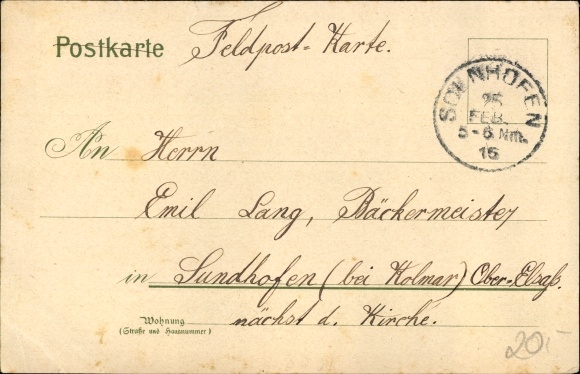 Postkarte Feldpost-Karte.
SOLNHOFEN
25
FEB.
5-6 Nm.
16
An Herrn
Emil Lang, Bäckermeister
in Sundhofen (bei Kolmar) Ober-Elsaß.
Wohnung nächst d. Kirche.
(Straße und Hausnummer)
20,-